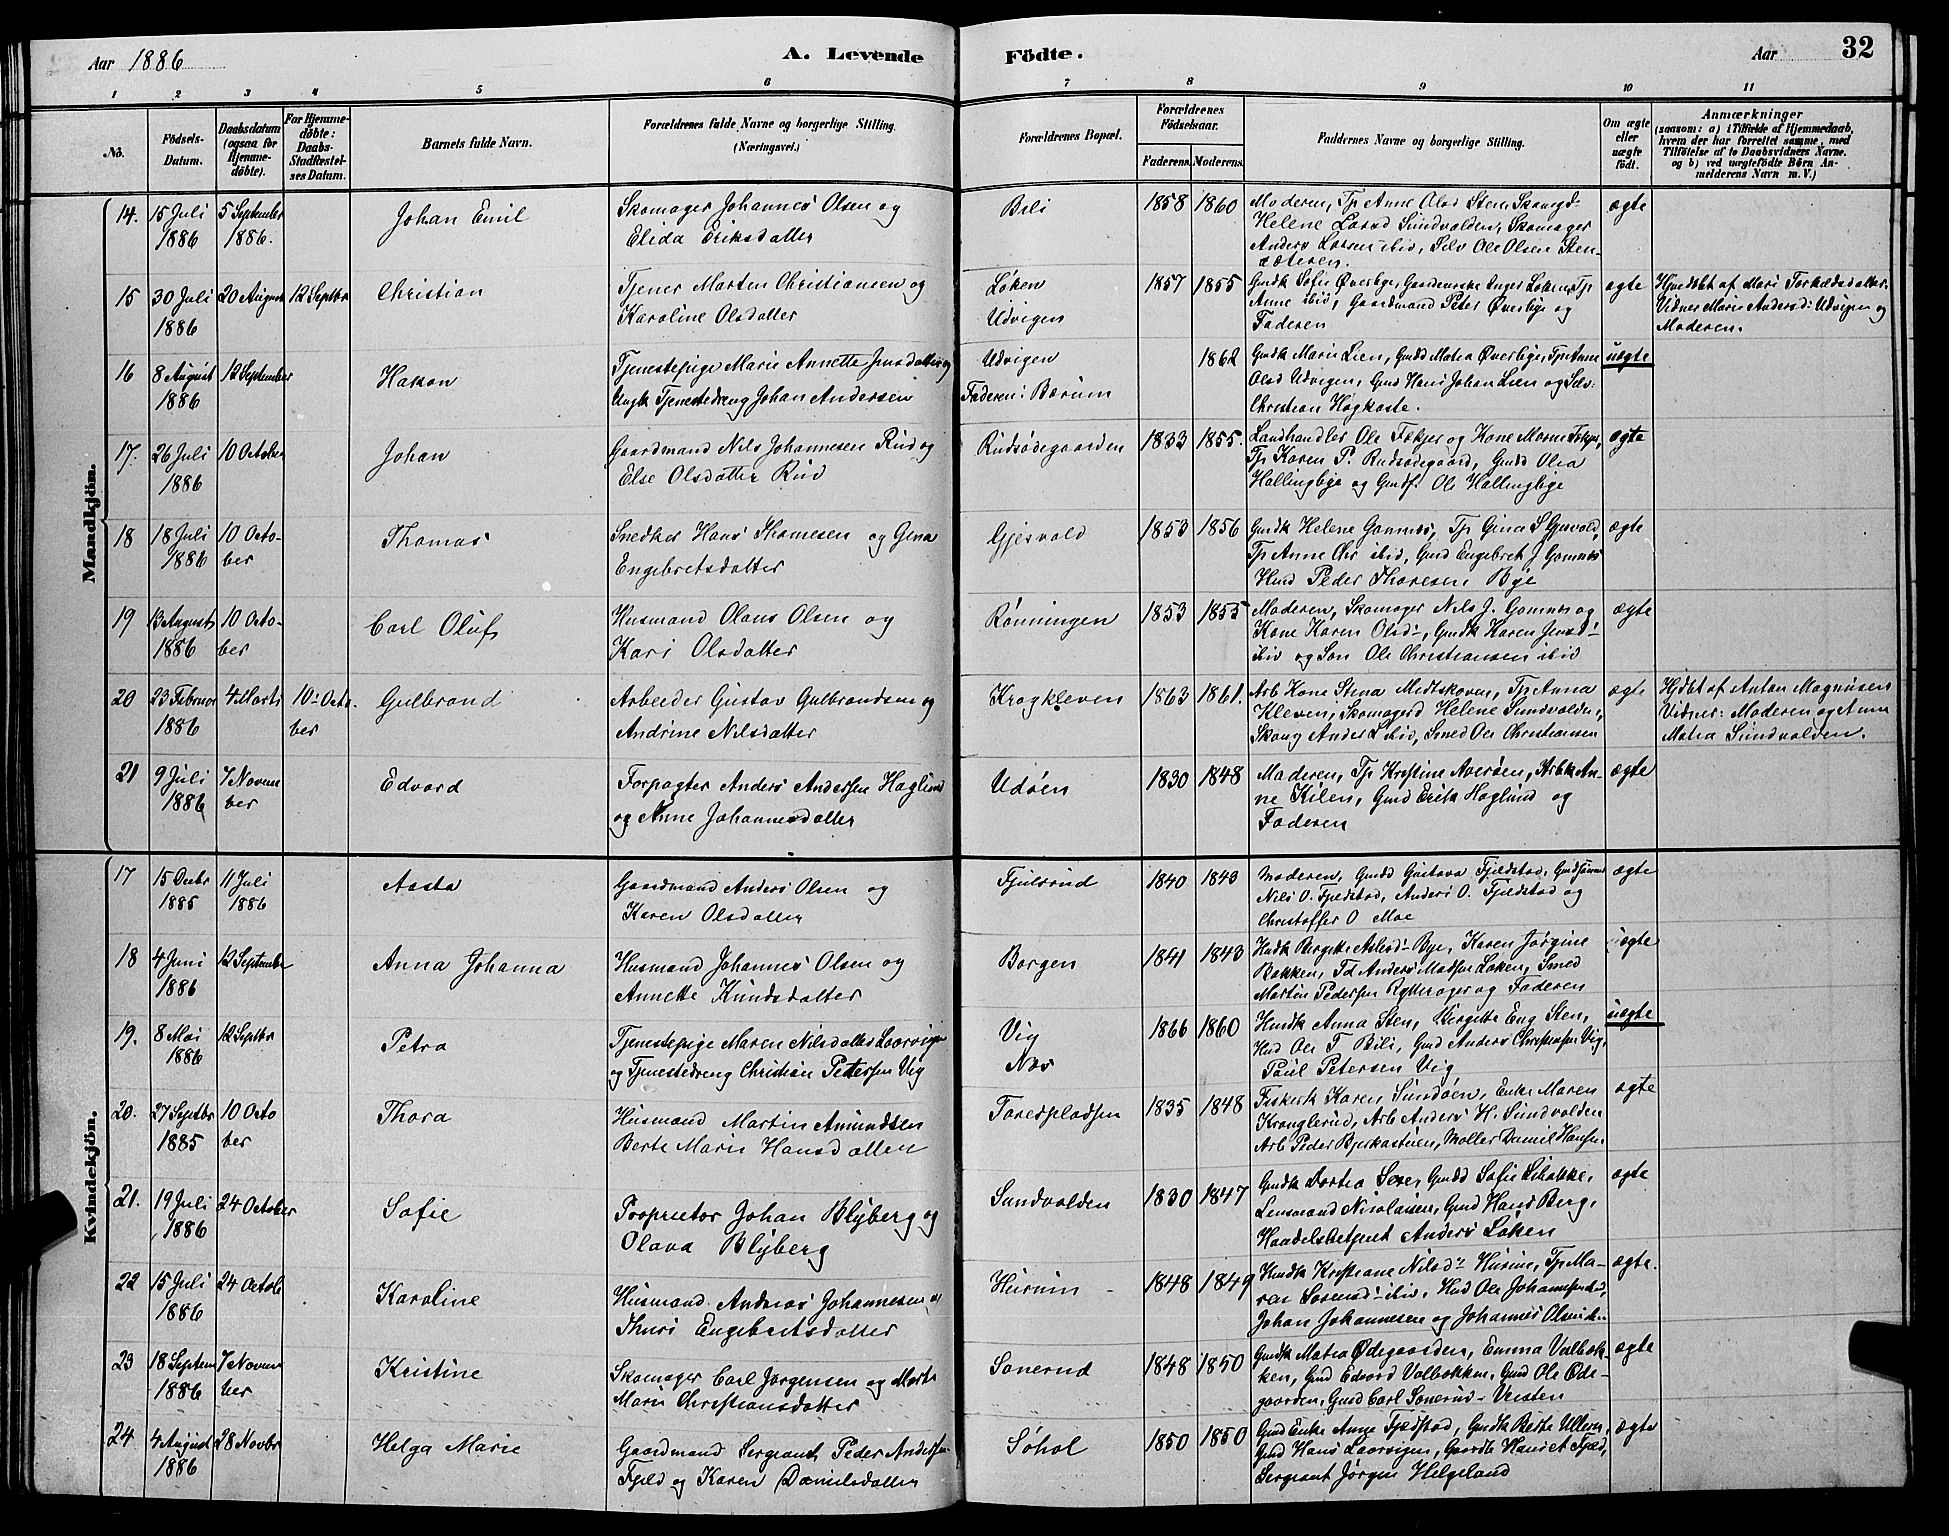 Aar 1886
A. Levende
Fødte.
Aar
32
1 2 3 4 5 6 7 8 9 10 11
No.
Födsels-
Datum.
Daabsdatum
(ogsaa for
Hjemme-
døbte).
For Hjemme-
døbte:
Daabs-
Stadfæstel-
ses Datum.
Barnets fulde Navn.
Forældrenes fulde Navne og borgerlige Stilling.
(Næringsvei.)
Forældrenes Bopæl.
Forældrenes
Födselsaar.
Faderens.
Moderens.
Faddernes Navne og borgerlige Stilling.
Om ægte
eller
uægte
født.
Anmærkninger
(saasom: a) i Tilfælde af Hjemmedaab,
hvem der har forrettet samme, med
Tilføielse af to Daabsvidners Navne.
og b) ved uægtefødte Børn An-
melderens Navn m. V.)
Mandkjön.
14. 15 Juli
1886
5 September
1886.
Johan Emil
Skomager Johannes Olsen og
Elida Eriksdatter
Bili
1858 1860
Moderen, Tp Anne Olsd Sten, Skomgd-
Helene Larsd Sundvolden, Skomager
Anders Larsen ibid, Selv Ole Olsen Sten-
sæteren.
ægte
15 30 Juli
1886
20 August
12 Septbr
Christian
Tjener Morten Christiansen og
Karoline Olsdatter
Løken
Udvigen
1857 1855
Gmdk Sofie Øverbye, Gaardmenske Inger Løken, Tp
Anne ibid, Gaardmand Peter Øverbye og
Faderen
ægte
Hjmdøbt af Mari Torkildsdatter.
Vidner Marie Andersd: Udvigen og
Moderen.
16 8 August
1886
12 September
Hakon
Tjenestepige Marie Annette Jensdatter og
Ungk Tjenestedreng Johan Andersen
Udvigen
Faderen: Bærum
1862
Gmdk Marie Lien, Gmdd Matea Øverbye, Tp Anne
Olsd Udvigen, Gmd Hans Johan Lien og Selv.
Christian Høgkaste.
uægte
17. 26 Juli
1886
10 October
Johan
Gaardmand Nils Johannesen Rud og
Else Olsdatter Rud
Rudsødegaarden
1833 1855.
Landhandler Ole Fekjer og Kone Maren Fekjer,
Tp Karen P. Rudsødegaard, Gmdd Olea
Hallingbye og Gmdf. Ole Hallingbye
ægte
18 18 Juli
1886
10 Octo-
ber
Thomas
Snedker Hans Thomesen og Gina
Engebretsdatter
Gjesvold
1853 1856
Gmdk Helene Gomnæs, Tp Gina S Gjesvold,
Tp Anne Chr ibid, Gmd Engebret J. Gomnæs
Hmd Peder Thoresen Bye
ægte
19 13 August
1886
10 Octo-
ber
Carl Oluf
Husmand Olaus Olsen og
Kari Olsdatter
Rønningen
1853 1855
Moderen, Skomager Nils J. Gomnæs og
Kone Karen Olsd-, Gmdk Karen Jensd-
ibid og Søn Ole Christiansen ibid
ægte
20 23 Februar
1886
4 Marts
10 Octo-
ber
Gulbrand
Arbeider Gustav Gulbrandsen og
Andrine Nilsdatter
Krogkleven
1863 1861.
Arb Kone Stina Midtskoven, Tp Anna
Kleven, Skomagerd Helene Sundvolden,
Skomg Anders L ibid, Smed Ole Christiansen
ægte
Hjdøbt af Anton Magnusen
Vidner: Moderen og Anne
Matea Sundvolden.
21 9 Juli
1886
7 Novem
ber
Edvard
Forpagter Anders Andersen Haglund
og Anne Johannesdatter
Udøen
1830 1848
Moderen, Tp Kristine Averøen, Arbk An-
ne Kilen, Gmd Erik Haglund og
Faderen
ægte
Kvindekjön.
17 15 Decbr
1885
11 Juli
1886
Aasta
Gaardmand Anders Olsen og
Karen Olsdatter
Fjulsrud
1840 1843
Moderen, Gmdd Gustava Fjeldstad, Gmdsønner
Nils O. Fjeldstad, Anders O. Fjeldstad og
Christoffer O Moe
ægte
18 4 Juni
1886
12 September
Anna Johanna
Husmand Johannes Olsen og
Annette Knudsdatter
Borgen
1841 1843
Hmdk Bergitte Aslesd- Bye, Karen Jørgine
Bakken, Fd Anders Madsen Løken, Smed
Martin Pedersen Rytterager og Faderen
ægte
19. 8 Mai
1886
12 Septbr
Petra
Tjenestepige Maren Nilsdatter Laarvigen
og Tjenestedreng Christian Petersen Vig
Vig
Næs
1866 1860
Hmdk Anna Sten, Bergitte Eng Sten,
Hmd Ole T Bili, Gmd Anders Christensen Vig,
Paul Petersen Vig
uægte
20. 27 Septbr
1885
10 Octo
ber
Thora
Husmand Martin Amundsen
Berte Marie Hansdatter
Torespladsen
1835 1848
Fiskerk Karen Sundøen, Enke Maren
Kroglerud, Arb Anders H. Sundvolden
Arb Peder Bjerkastuen, Møller Daniel Hansen
ægte
21. 19 Juli
1886
24 October
Sofie
Proprietør Johan Blyberg og
Olava Blyberg
Sundvolden
1830 1847
Gmdk Dortea Sere, Gmdd Sofie Libakke,
Lensmand Nicolaisen, Gmd Hans Berg,
Handelsbetjent Anders Løken
ægte
22 15 Juli
1886
24 Octob
Karoline
Husmand Andreas Johannesen og
Thuri Engebretsdatter
Hurum
1848 1849
Hmdk Kristiane Nilsd- Hurum, Tp Ma-
ren Larsensd- ibid, Hmd Ole Johannesen ibid,
Johan Johannesen og Johannes Olsen ibid
ægte.
23 18 Septem
1886
7 Novem
ber
Kristine
Skomager Carl Jørgensen og Marte
Marie Christiansdatter
Sonerud
1848 1850
Gmdk Matea Ødegaarden, Emma Valbak-
ken, Gmd Edvard Valbakken, Gmd Ole Øde-
gaarden, Gmd Carl Sonerud- Vesten
ægte
24 4 August
1886
28 Novbr
Helga Marie
Gaardmand Sergeant Peder Andersen
Fjeld og Karen Danielsdatter
Søhol
1850 1850
Gmd Enke Anne Fjeldstad, Gmdk Berthe Ullern,
Gmd Hans Laarvigen, Gaardb Hans A Fjeld,
Sergeant Jørgen Helgeland
ægte